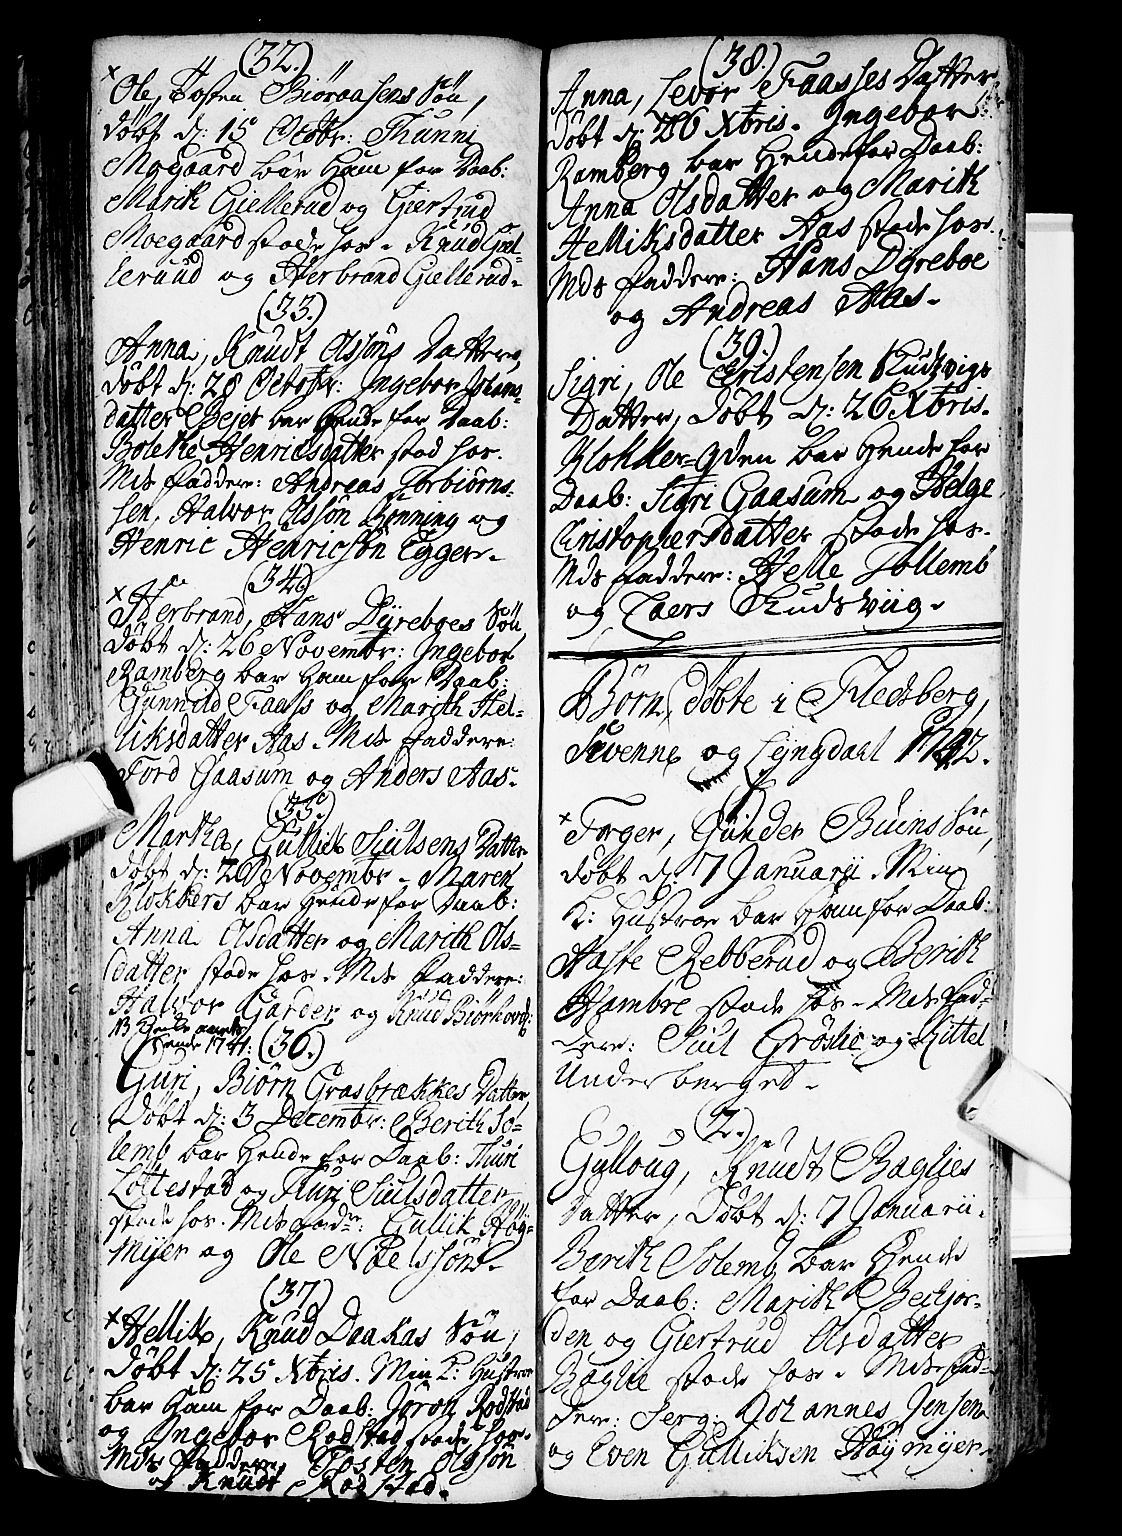 (32.)
Ole, Tosten Biöraasens Sön,
döbt d: 15 Octobr: Thunni
Moegaard bar Ham for Daab:
Marith Giellerud og Giertrud
Moegaard stode hos. Knud Giel-
leruud og Herbrand Giellerud.
(33.)
Anna, Knudt Olssöns Datter,
döbt d: 28 Octobr: Ingebor Johans-
datter Bejer bar Hende for Daab:
Bolethe Henricsdatter stod hos.
Mds faddere: Andreas Torbiörns-
sen, Halvor Olssön Bönning og
Henric Henricsön Egger.
(34)
Herbrand, Hans Dyreboes Sön
döbt d: 26 Novembr: Ingebor
Ramberg bar Ham for Daab:
Gunnild Faass og Marith Hel-
liksdatter Aas. Mds faddere:
Tord Gaasum og Anders Aas.
(35)
Martha, Gullik Siulsens Datter
döbt d: Novembr. Maren
Klokkers bar Hende for Daab:
Anna Olsdatter og Marith Ols-
datter stode hos. Mds Faddere:
Halvor Garder og Knud Biörhovd:
1741: (36.)
Guri, Biörn Grasbrækkes Datter,
Döbt d: 3 Decembr: Berith So-
lemb bar Hende for Daab: Thuri
Löttestad og Thuri Siulsdatter
stode hos. Mds fadre: Gullik Höÿ-
mÿer og Ole Nielssöns.
(37)
Hellik, Knud Daakas Sön,
döbt d: 25 Xbris. Min K: Hustroe
bar Ham for Daab: Jöran Rodstad
og Ingebor Rodstad stode hos.
Mds Faddere, Tosten Olssön
og Knudt Rodstad.
(38.)
Anna, Levor Faasses Datter,
Döbt d: 26 Xbris. Ingebor
Ramberg bar Hende for Daab:
Anna Olsdatter og Marith
Helliksdatter Aas stode hos.
Mds faddere: Hans Dyreboe
og Andreas Aas.
(39.)
Sigri, Ole Cristensen Rudsvigs
Datter, Döbt d: 26 Xbris.
Klokker-Gden bar Hende for
Daab: Sigri Gaasum og Helge
Cristophersdatter stode hos.
Mds faddere: Helle Sollemb
og Laers Rudsviig.
Börn, döbte i Flesberg,
Svenne og Lyngdaal 1742.
Torger, Gunder Buins Sön,
döbt d: 7 Januarii. Min
K: Hustroe bar Ham for Daab:
Haste Rebberud og Berith
Hambre stode hos. Mds Fad-
dere: Siul Gröslie og Kittel
Underberget.
(2.)
Gulloug, Knudt Baglies
Datter, Döbt d: 7 Januarii.
Berith Solemb bar Hende
for Daab: Marith Bechjor-
den og Giertrud Olsdatter
Baglie stode hos. Mds Fad-
dere: Serg: Johannes Jensen
og Even Gulliksen Höÿmÿer.